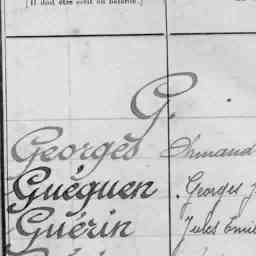 [Il doit être écrit en bâtarde.]
G.
Georges Armand
Guéguen Georges J
Guérin Jules Emi